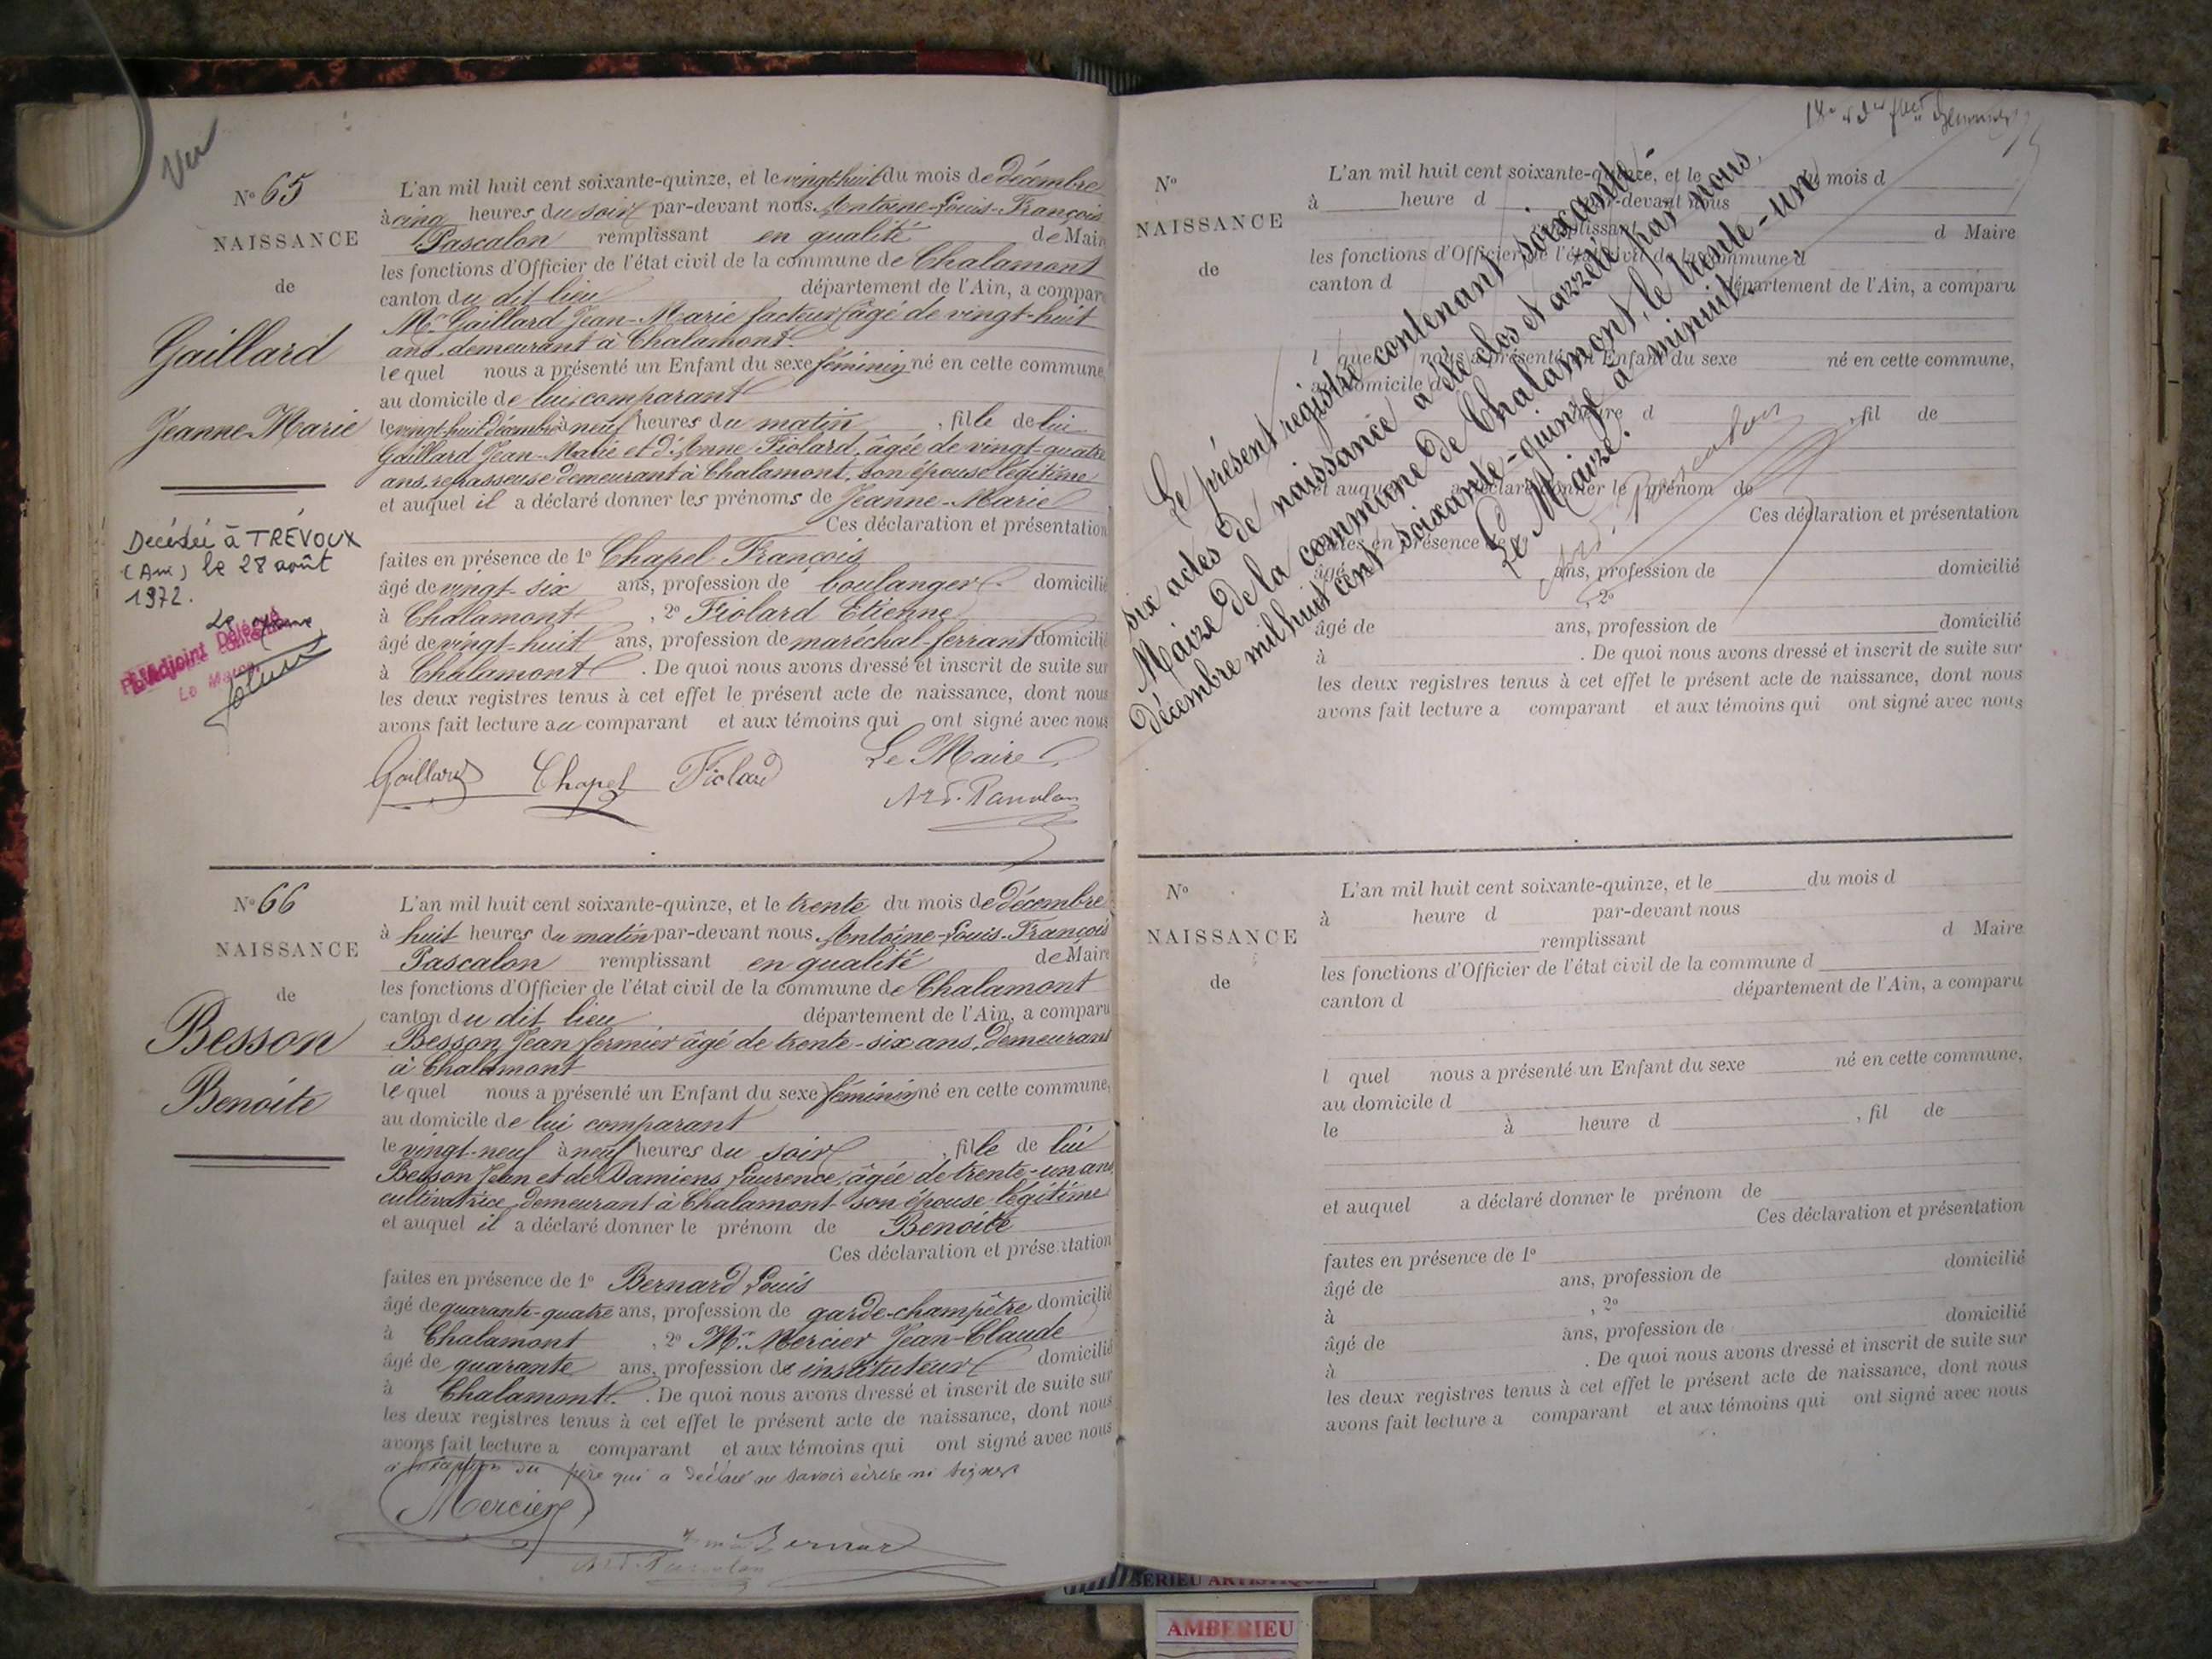 Vu
Nº 65
NAISSANCE
de
Gaillard
Jeanne Marie
Décédée à TRÉVOUX
(Ain) le 28 août
1972.
L'Adjoint Délégué
Le Maire
L'an mil huit cent soixante-quinze, et le vingt-huit du mois de décembre
à cinq heures du soir par-devant nous Antoine-Louis-François
Pascalon remplissant en qualité de Maire
les fonctions d'Officier de l'état civil de la commune de Chalamont
canton du dit lieu département de l'Ain, a comparu
Mr Gaillard Jean-Marie facteur âgé de vingt-huit
ans, demeurant à Chalamont
lequel nous a présenté un Enfant du sexe féminin né en cette commune,
au domicile de lui comparant
le vingt-huit décembre à neuf heures du matin, fille de lui
Gaillard Jean-Marie et d'Anne Fiolard, âgée de vingt-quatre
ans, repasseuse demeurant à Chalamont, son épouse légitime
et auquel il a déclaré donner les prénoms de Jeanne-Marie
Ces déclaration et présentation
faites en présence de 1º Chapel François
âgé de vingt-six ans, profession de boulanger domicilié
à Chalamont, 2º Fiolard Etienne
âgé de vingt-huit ans, profession de maréchal-ferrant domicilié
à Chalamont. De quoi nous avons dressé et inscrit de suite sur
les deux registres tenus à cet effet le présent acte de naissance, dont nous
avons fait lecture au comparant et aux témoins qui ont signé avec nous
Gaillard Chapel Fiolard Le Maire
Ard. Pascalon
Nº 66
NAISSANCE
de
Besson
Benoite
L'an mil huit cent soixante-quinze, et le trente du mois de décembre
à huit heures du matin par-devant nous Antoine-Louis-François
Pascalon remplissant en qualité de Maire
les fonctions d'Officier de l'état civil de la commune de Chalamont
canton du dit lieu département de l'Ain, a comparu
Besson Jean fermier âgé de trente-six ans, demeurant
à Chalamont
lequel nous a présenté un Enfant du sexe féminin né en cette commune,
au domicile de lui comparant
le vingt-neuf à neuf heures du soir, fille de lui
Besson Jean et de Damiens Laurence, âgée de trente-un ans
cultivatrice, demeurant à Chalamont son épouse légitime
et auquel il a déclaré donner le prénom de Benoite
Ces déclaration et présentation
faites en présence de 1º Bernard Louis
âgé de quarante-quatre ans, profession de garde-champêtre domicilié
à Chalamont, 2º Mr Mercier Jean-Claude
âgé de quarante ans, profession de instituteur domicilié
à Chalamont. De quoi nous avons dressé et inscrit de suite sur
les deux registres tenus à cet effet le présent acte de naissance, dont nous
avons fait lecture a comparant et aux témoins qui ont signé avec nous
à l'exception du père qui a déclaré ne savoir écrire ni signer
Mercier
Bernard
Ard. Pascalon
Nº
NAISSANCE
de
L'an mil huit cent soixante-quinze, et le du mois d
à heure d par-devant nous
remplissant d Maire
les fonctions d'Officier de l'état civil de la commune d
canton d département de l'Ain, a comparu
l quel nous a présenté un Enfant du sexe né en cette commune,
au domicile d
heure d , fil de
et auquel a déclaré donner le prénom de
Ces déclaration et présentation
faites en présence de 1º
âgé ans, profession de domicilié
, 2º
âgé de ans, profession de domicilié
à . De quoi nous avons dressé et inscrit de suite sur
les deux registres tenus à cet effet le présent acte de naissance, dont nous
avons fait lecture a comparant et aux témoins qui ont signé avec nous
Le présent registre contenant soixante-
six actes de naissance a été clos et arrêté par nous,
Maire de la commune de Chalamont, le trente-un
décembre mil huit cent soixante-quinze à minuit.
Le Maire.
Ard. Pascalon
Nº
NAISSANCE
de
L'an mil huit cent soixante-quinze, et le du mois d
à heure d par-devant nous
remplissant d Maire
les fonctions d'Officier de l'état civil de la commune d
canton d département de l'Ain, a comparu
l quel nous a présenté un Enfant du sexe né en cette commune,
au domicile d
le à heure d , fil de
et auquel a déclaré donner le prénom de
Ces déclaration et présentation
faites en présence de 1º
âgé de ans, profession de domicilié
à , 2º
âgé de ans, profession de domicilié
à . De quoi nous avons dressé et inscrit de suite sur
les deux registres tenus à cet effet le présent acte de naissance, dont nous
avons fait lecture a comparant et aux témoins qui ont signé avec nous
AMBERIEU